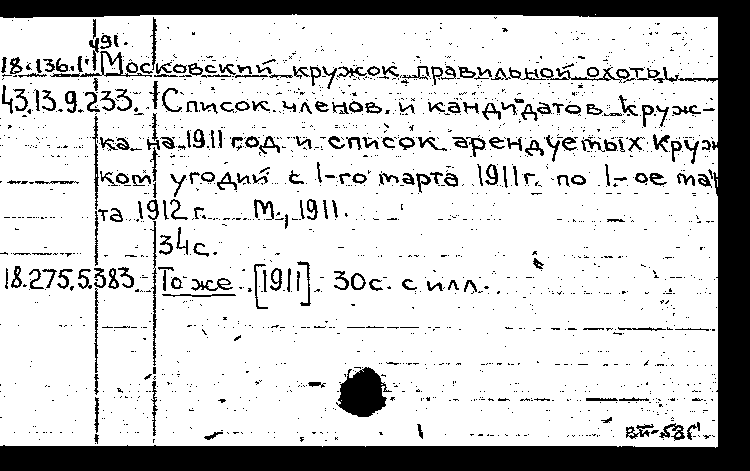 491.
18.136.1. Московский кружок правильной охоты.
43.13.9.233. Список членов и кандидатов круж-
ка на 1911 год и список арендуемых круж
ком угодий с 1-го марта 1911г. по 1-ое мар
та 1912 г. М., 1911.
34с.
18.275.5.383. То же. [1911]. 30с. с илл.